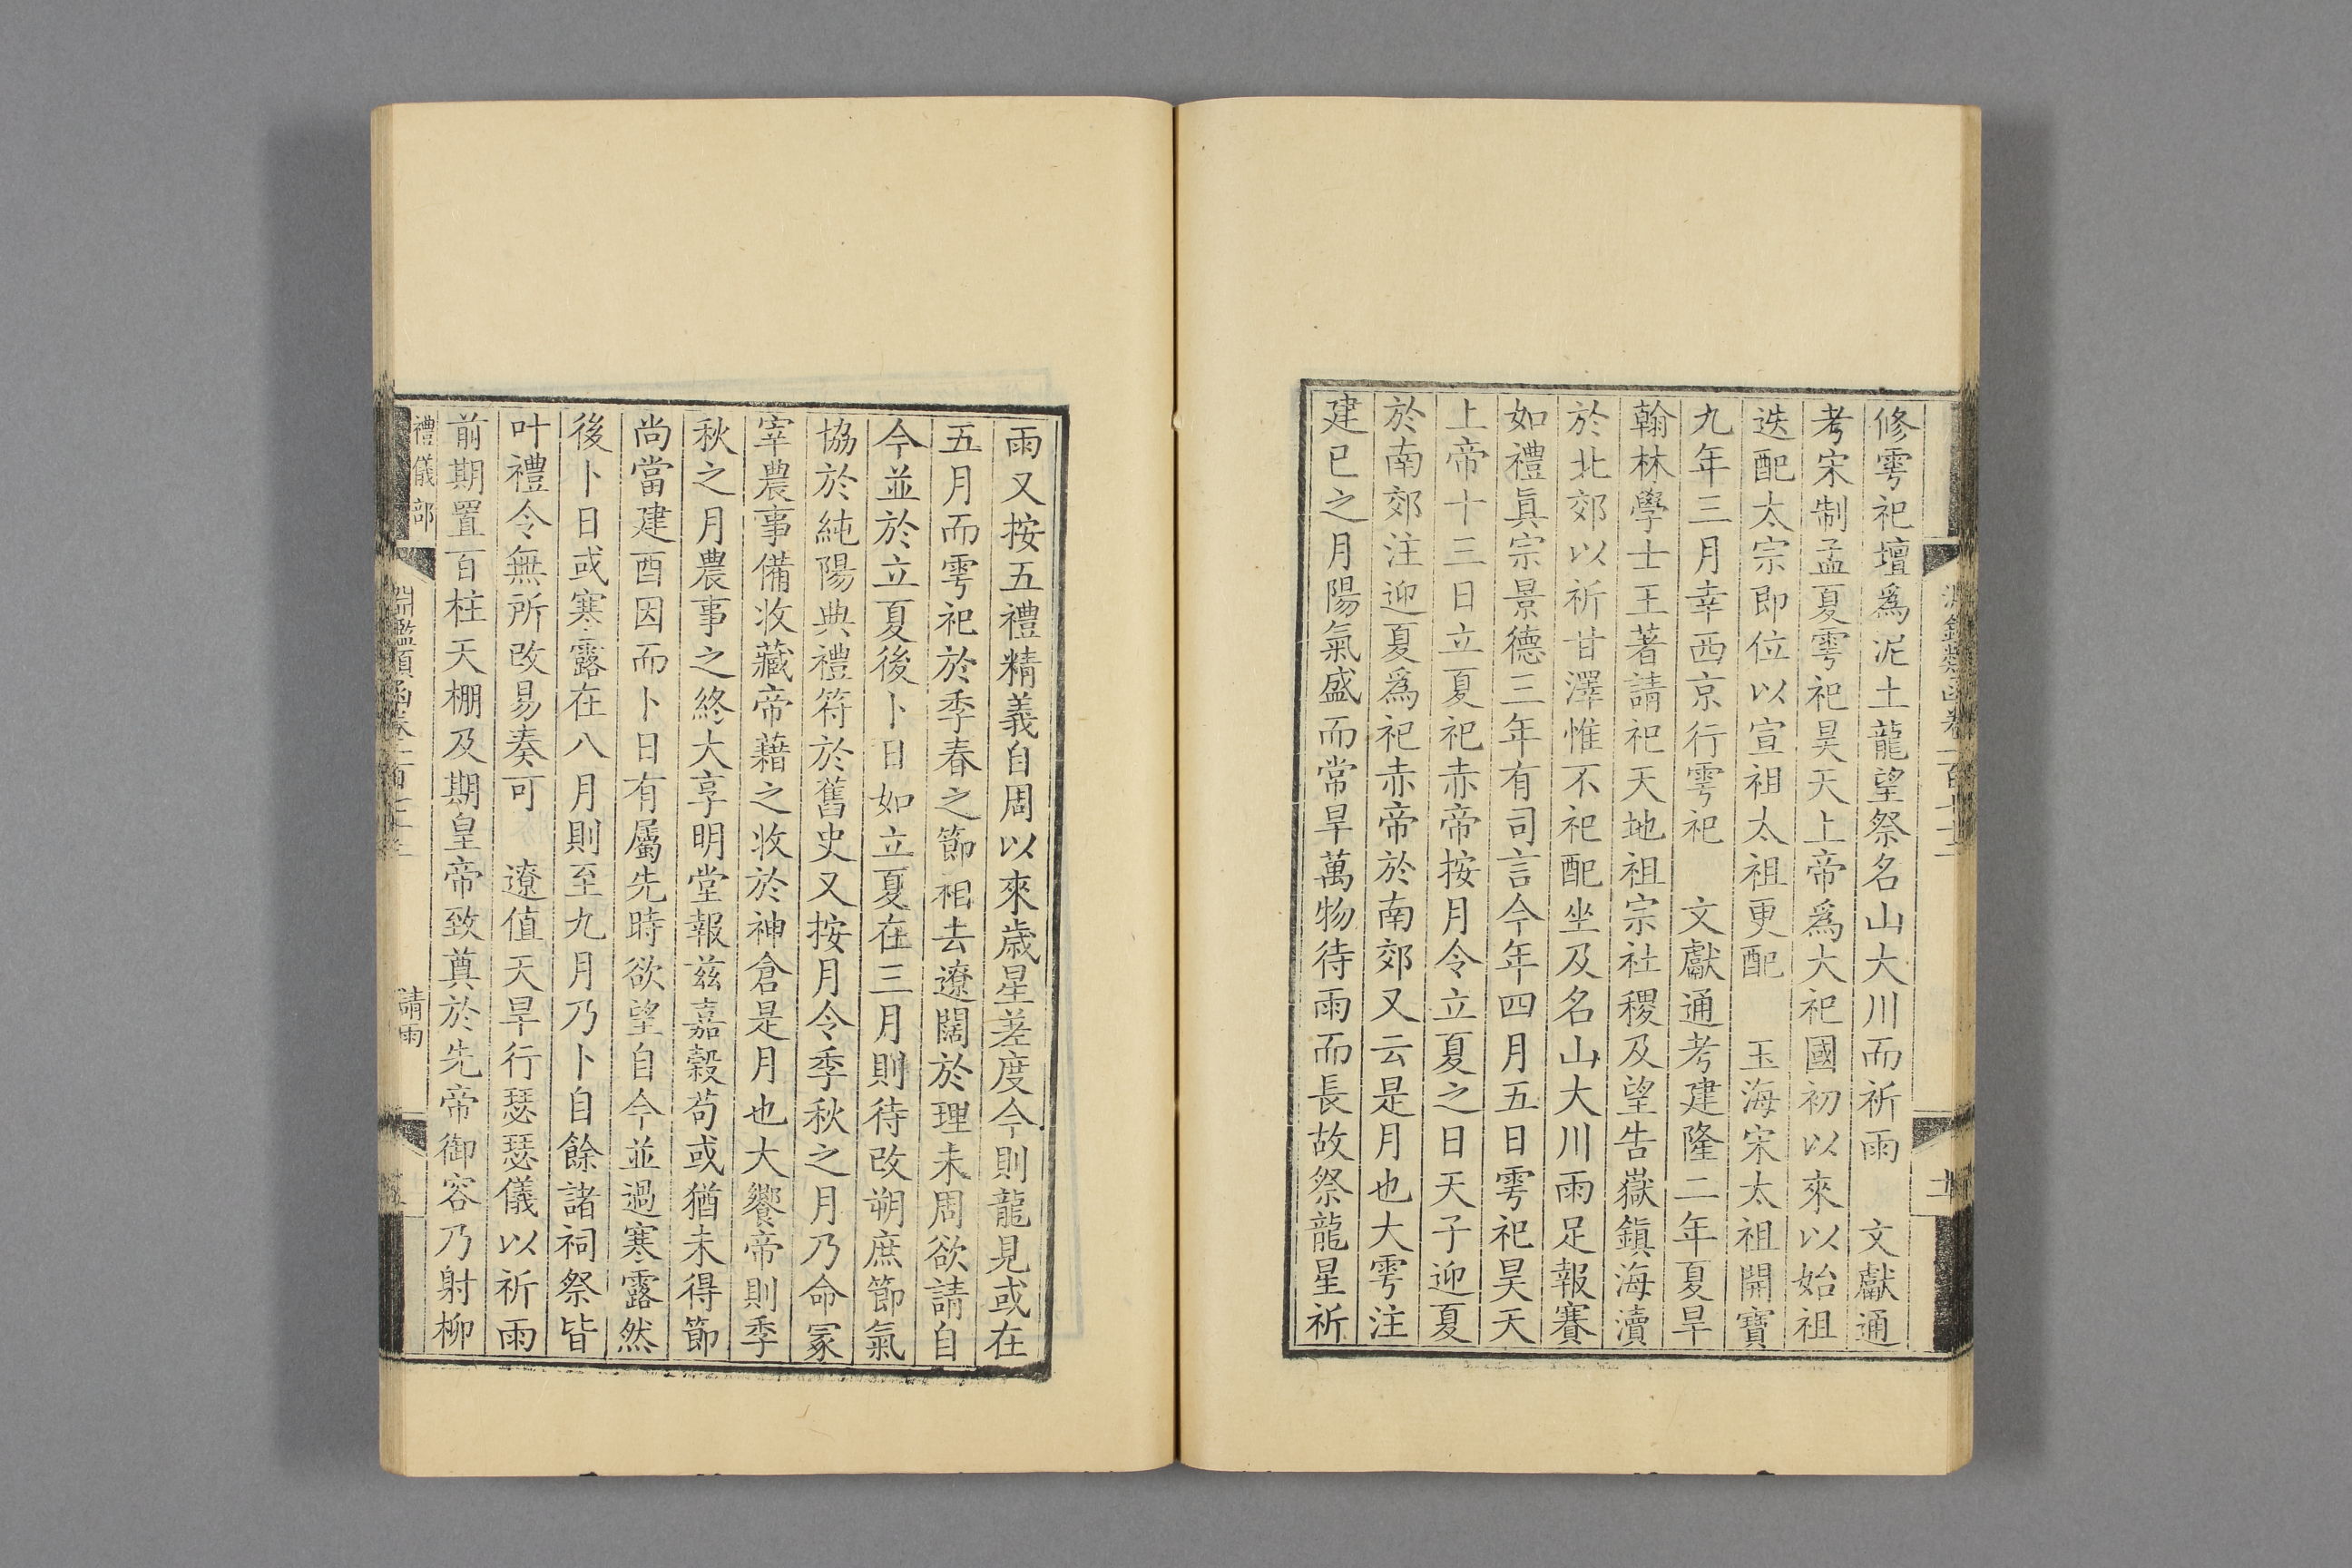 修雩祀壇爲泥土龍望祭名山大川而祈雨　文獻通
考宋制孟夏雩祀昊天上帝爲大祀國初以來以始祖
迭配太宗即位以宣祖太祖更配　玉海宋太祖開寶
九年三月幸西京行雩祀　文獻通考建隆二年夏旱
翰林學士王著請祀天地祖宗社稷及望告嶽鎮海瀆
於北郊以祈甘澤惟不祀配坐及名山大川雨足報賽
如禮眞宗景德三年有司言今年四月五日雩祀昊天
上帝十三日立夏祀赤帝按月令立夏之日天子迎夏
於南郊注迎夏爲祀赤帝於南郊又云是月也大雩注
建巳之月陽氣盛而常旱萬物待雨而長故祭龍星祈
雨又按五禮精義自周以來歲星差度今則龍見或在
五月而雩祀於季春之節相去遼闊於理未周欲請自
今並於立夏後卜日如立夏在三月則待改朔庶節氣
協於純陽典禮符於舊史又按月令季秋之月乃命冢
宰農事備收藏帝藉之收於神倉是月也大饗帝則季
秋之月農事之終大享明堂報茲嘉穀苟或猶未得節
尚當建酉因而卜日有屬先時欲望自今並過寒露然
後卜日或寒露在八月則至九月乃卜自餘諸祠祭皆
叶禮令無所改易奏可　遼值天旱行瑟瑟儀以祈雨
前期置百柱天棚及期皇帝致奠於先帝御容乃射柳
禮儀部
淵鑑類函卷一百七十二
請雨